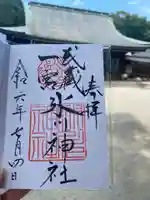 奉拝
武蔵
一宮
氷川神社
令和六年七月四日